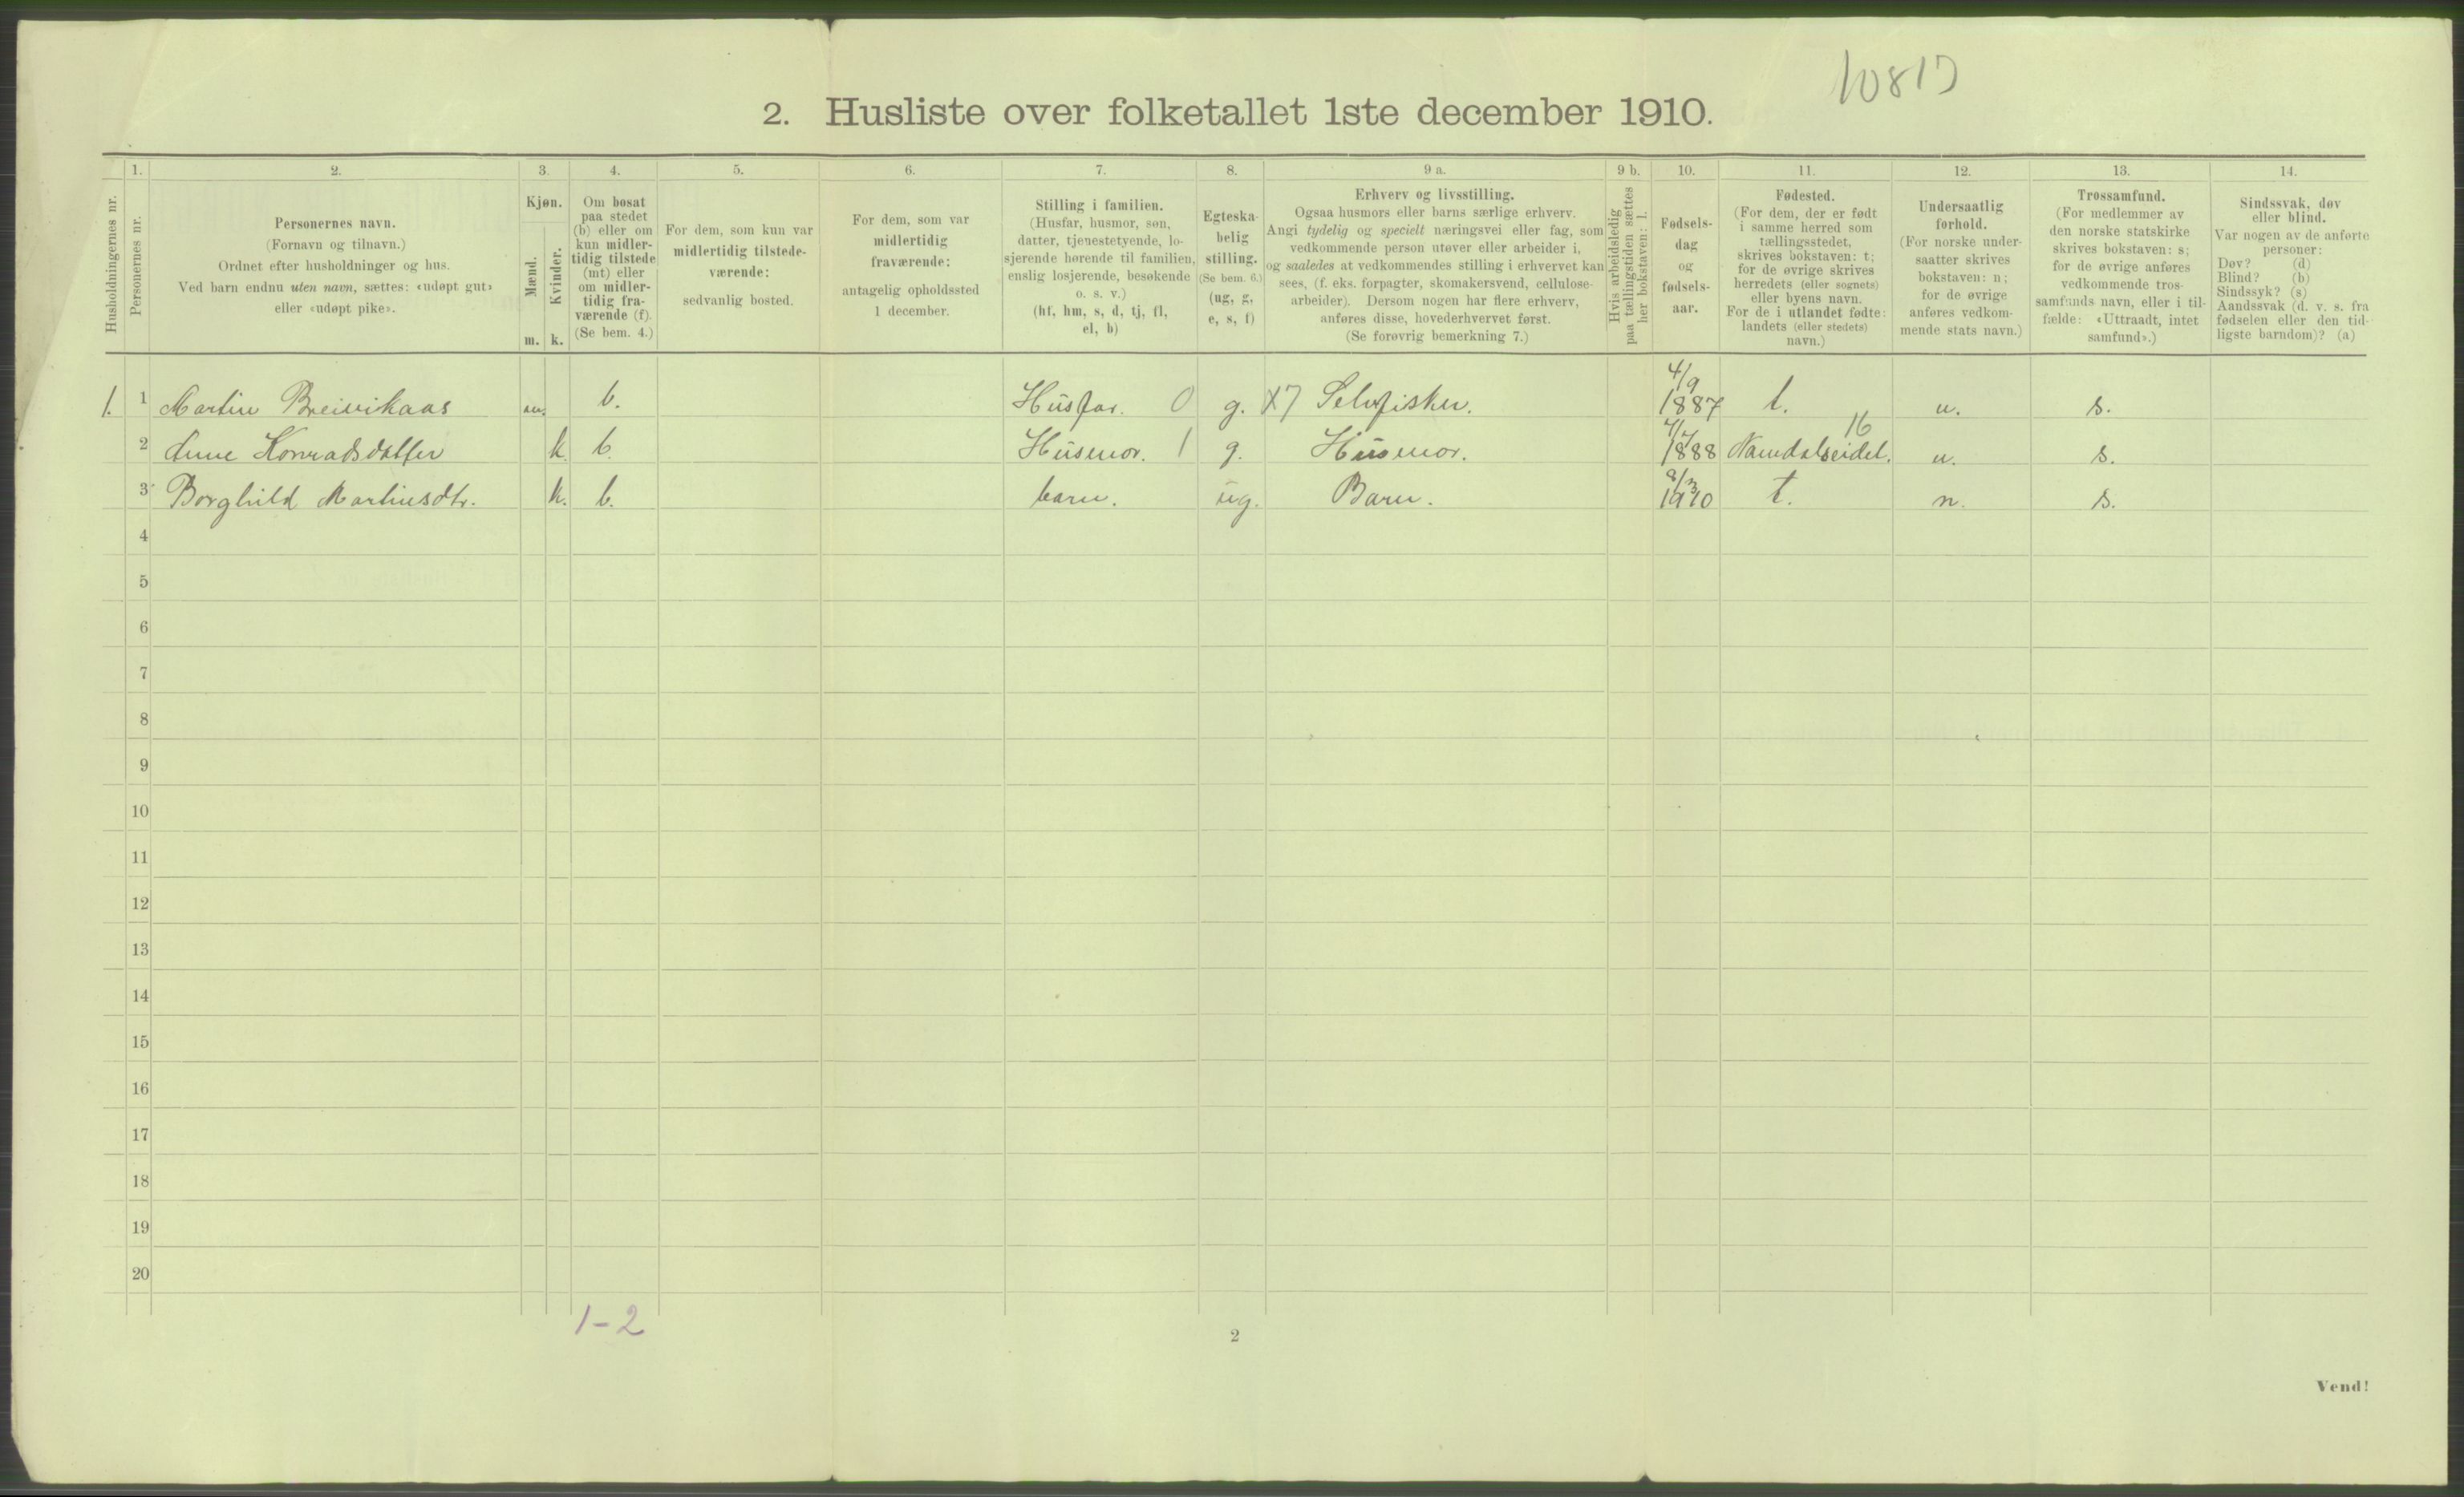 10817
2. Husliste over folketallet 1ste december 1910.
Husholdningernes nr.
1.
Personernes nr.
2.
Personernes navn.
(Fornavn og tilnavn.)
Ordnet efter husholdninger og hus.
Ved barn endnu uten navn, sættes: «udøpt gut»
eller «udøpt pike».
3.
Kjøn.
Mænd.
Kvinder.
m. k.
4.
Om bosat
paa stedet
(b) eller om
kun midler-
tidig tilstede
(mt) eller
om midler-
tidig fra-
værende (f).
(Se bem. 4.)
5.
For dem, som kun var
midlertidig tilstede-
værende:
sedvanlig bosted.
6.
For dem, som var
midlertidig
fraværende:
antagelig opholdssted
1 december.
7.
Stilling i familien.
(Husfar, husmor, søn,
datter, tjenestetyende, lo-
sjerende hørende til familien,
enslig losjerende, besøkende
o. s. v.)
(hf, hm, s, d, tj, fl,
el, b)
8.
Egteska-
belig
stilling.
(Se bem. 6.)
(ug, g,
e, s, f)
9 a.
Erhverv og livsstilling.
Ogsaa husmors eller barns særlige erhverv.
Angi tydelig og specielt næringsvei eller fag, som
vedkommende person utøver eller arbeider i,
og saaledes at vedkommendes stilling i erhvervet kan
sees, (f. eks. forpagter, skomakersvend, cellulose-
arbeider). Dersom nogen har flere erhverv,
anføres disse, hovederhvervet først.
(Se forøvrig bemerkning 7.)
9 b.
Hvis arbeidsledig
paa tællingstiden sættes
her bokstaven: l.
10.
Fødsels-
dag
og
fødsels-
aar.
11.
Fødested.
(For dem, der er født
i samme herred som
tællingsstedet,
skrives bokstaven: t;
for de øvrige skrives
herredets (eller sognets)
eller byens navn.
For de i utlandet fødte:
landets (eller stedets)
navn.)
12.
Undersaatlig
forhold.
(For norske under-
saatter skrives
bokstaven: n;
for de øvrige
anføres vedkom-
mende stats navn.)
13.
Trossamfund.
(For medlemmer av
den norske statskirke
skrives bokstaven: s;
for de øvrige anføres
vedkommende tros-
samfunds navn, eller i til-
fælde: «Uttraadt, intet
samfund».)
14.
Sindssvak, døv
eller blind.
Var nogen av de anførte
personer:
Døv? (d)
Blind? (b)
Sindssyk? (s)
Aandssvak (d. v. s. fra
fødselen eller den tid-
ligste barndom)? (a)
1. 1 Martin Breivikaas m. b. Husfar. 0 g. X7 Selvfisker. 4/9 1887 t. n. s.
2 Anne Konradsdatter k. b. Husmor. 1 g. Husmor. 1888 Namdalseidet. 16 n. s.
3 Borghild Martinsdtr. k. b. barn. ug. Barn. 8/3 1910 t. n. s.
4
5
6
7
8
9
10
11
12
13
14
15
16
17
18
19
20
1-2
2
Vend!